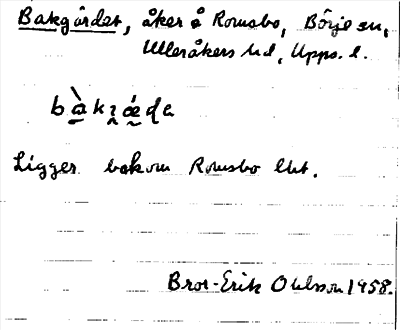 Bakgärdet, åker å Romsbo, Börje sn,
Ulleråkers hd, Upps. l.
Ligger bakom Romsbo
Bror-Erik Ohlsson 1958.